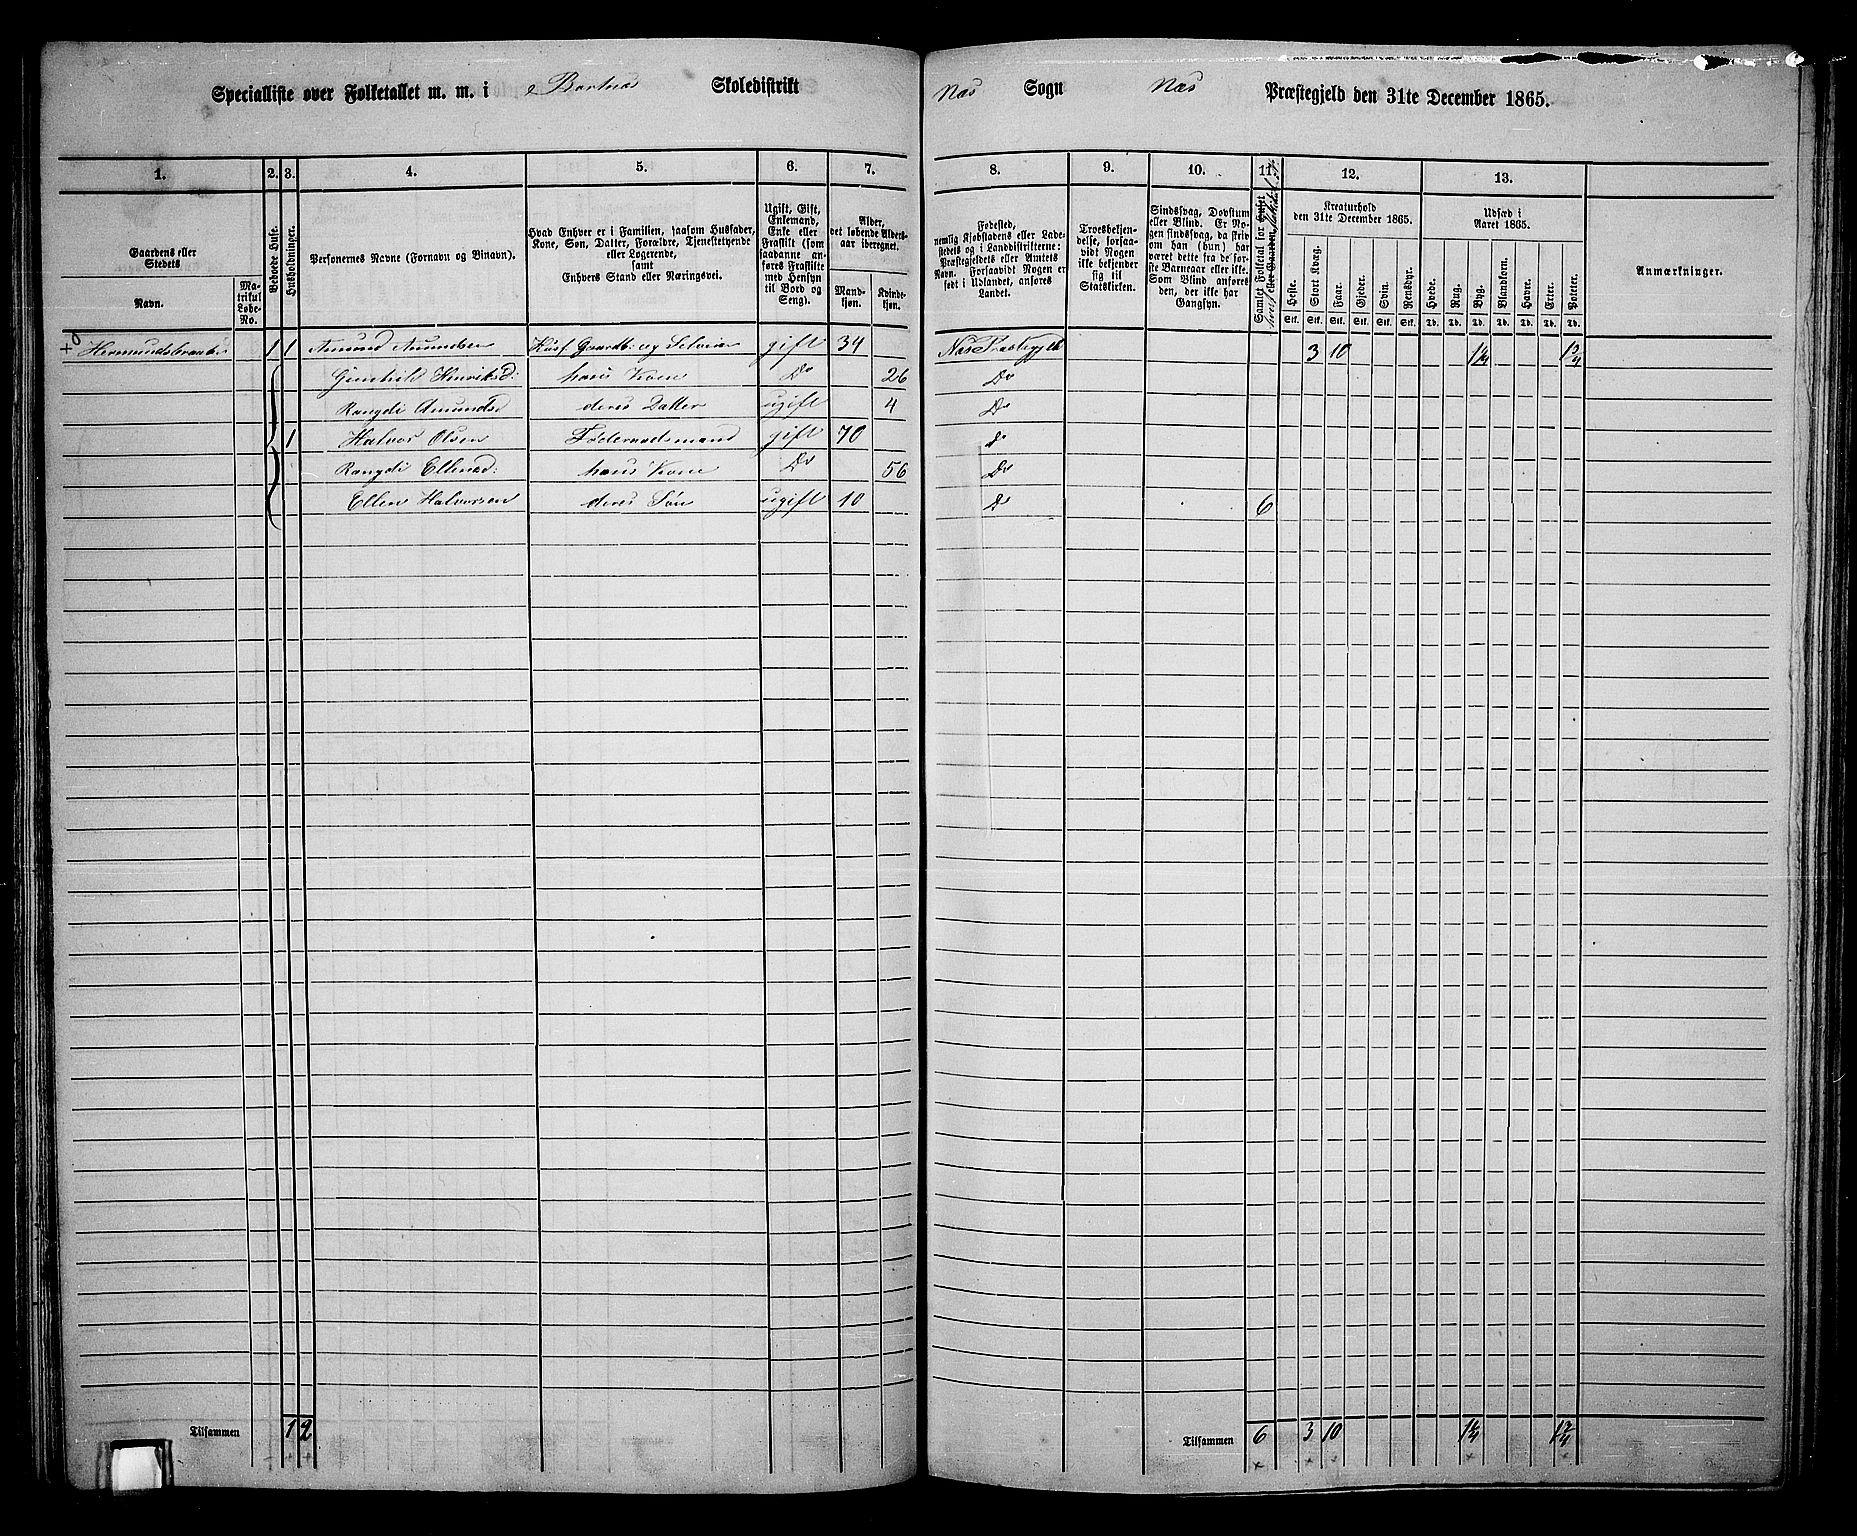 Specialliste over Folketallet m. m. i Skoledistrikt
Næs Sogn Næs Præstegjeld den 31te December 1865.
1. 2. 3. 4. 5. 6. 7.
8. 9. 10. 11. 12. 13.
Gaardens eller Stedets
Navn.
Matrikul Løbe-No.
Beboede Huse.
Husholdninger.
Personernes Navne (Fornavn og Binavn).
Hvad Enhver er i Familien, saasom Husfader, Kone, Søn, Datter, Forældre, Tjenestetyende eller Logerende, samt Enhvers Stand eller Næringsvei.
Ugift, Gift, Enkemand, Enke eller Fraskilt (som saadanne anføres Fraskilte med Hensyn til Bord og Seng).
Alder, det løbende Aldersaar iberegnet.
Mandkjøn.
Kvindekjøn.
Fødested, nemlig Kjøbstadens eller Ladestedets og i Landdistrikterne: Præstegjeldets eller Amtets Navn. Forsaavidt Nogen er født i Udlandet, anføres Landet.
Troesbekjendelse, forsaavidt Nogen ikke bekjender sig til Statskirken.
Sindssvag, Døvstum eller Blind. Er Nogen sindssvag, da skrives om han (hun) har været dette fra de første Barneaar eller ikke. Som Blind anføres den, der ikke har Gangsyn.
Samlet Folketal for Huset eller Gaarden
Kreaturhold den 31te December 1865.
Heste. Stort Kvæg. Faar. Gjeder. Svin. Rensdyr.
Stk. Stk. Stk. Stk. Stk. Stk.
Udsæd i Aaret 1865.
Hvede. Rug. Byg. Blandkorn. Havre. Erter. Poteter.
Td. Td. Td. Td. Td. Td. Td.
Anmærkninger.
Hermundsbraaten 1 1 Amund Amundsen Husf Gaardb: og Selveier gift 34 Næs Præstegjeld 3 10 1¼
Gunhild Henriksd: hans Kone Do 26 Do
Rangdi Amundsd deres Datter ugift 4 Do
1 Halvor Olsen Føderaadsmand gift 70 Do
Rangdi Ellensd: hans Kone Do 56 Do
Ellen Halvorsen deres Søn ugift 10 Do 6
Tilsammen 1 2
Tilsammen 6 3 10 1¼